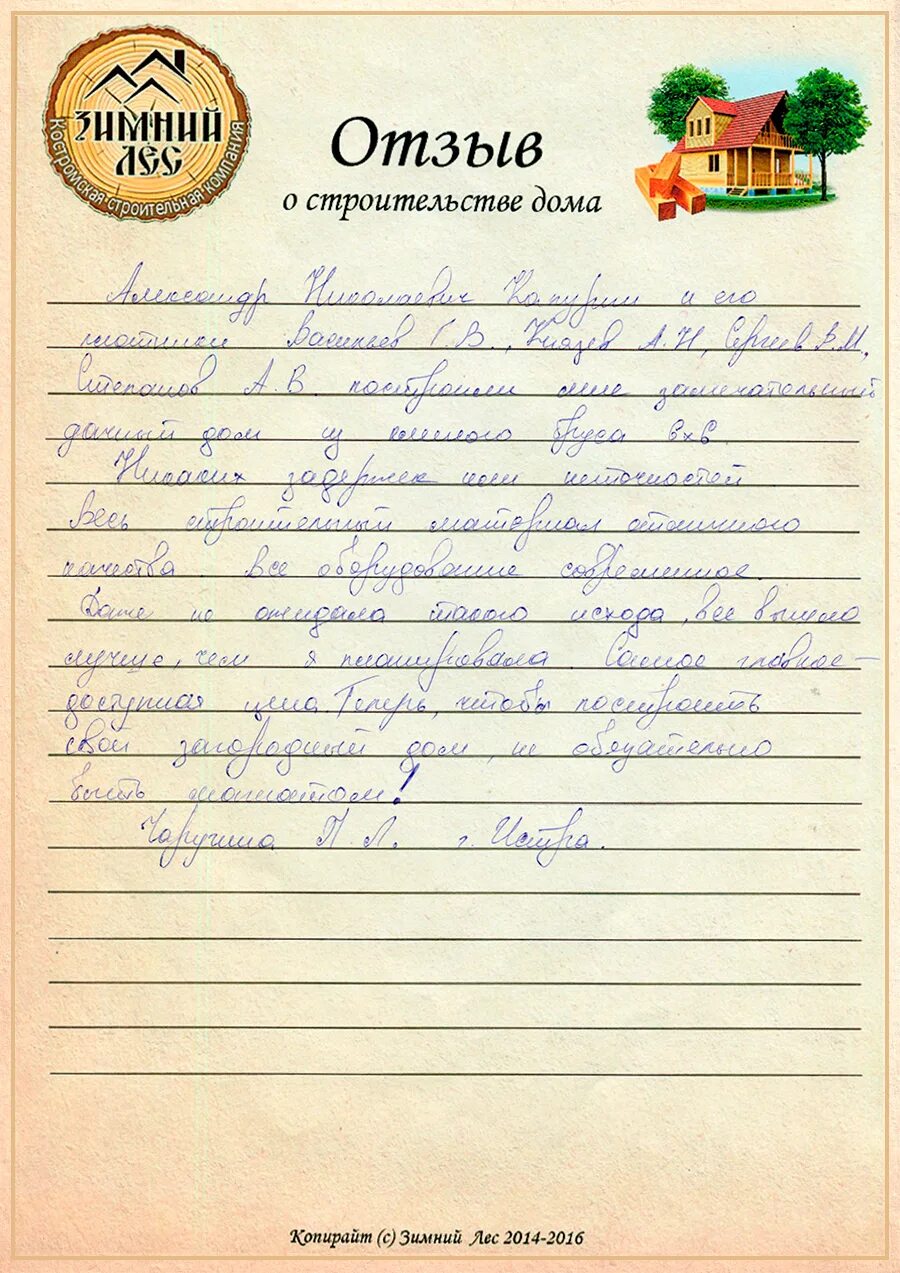 ЗИМНИЙ
ЛЕС
Костромская строительная компания
Отзыв
о строительстве дома
Александр Николаевич Капурин и его
плотники Васильев Г.В., Князев А.Н, Сергеев В.М,
Степанов А.В. построили мне замечательный
дачный дом из клееного бруса 6х6
Никаких задержек или неточностей
Весь строительный материал отличного
качества. Все оборудование современное.
Даже не ожидала такого исхода, все вышло
лучше, чем я планировала. Самое главное -
доступная цена. Теперь, чтобы построить
свой загородный дом, не обязательно
быть магнатом!
Чаручина П.Л. г. Истра.
Копирайт (с) Зимний Лес 2014-2016